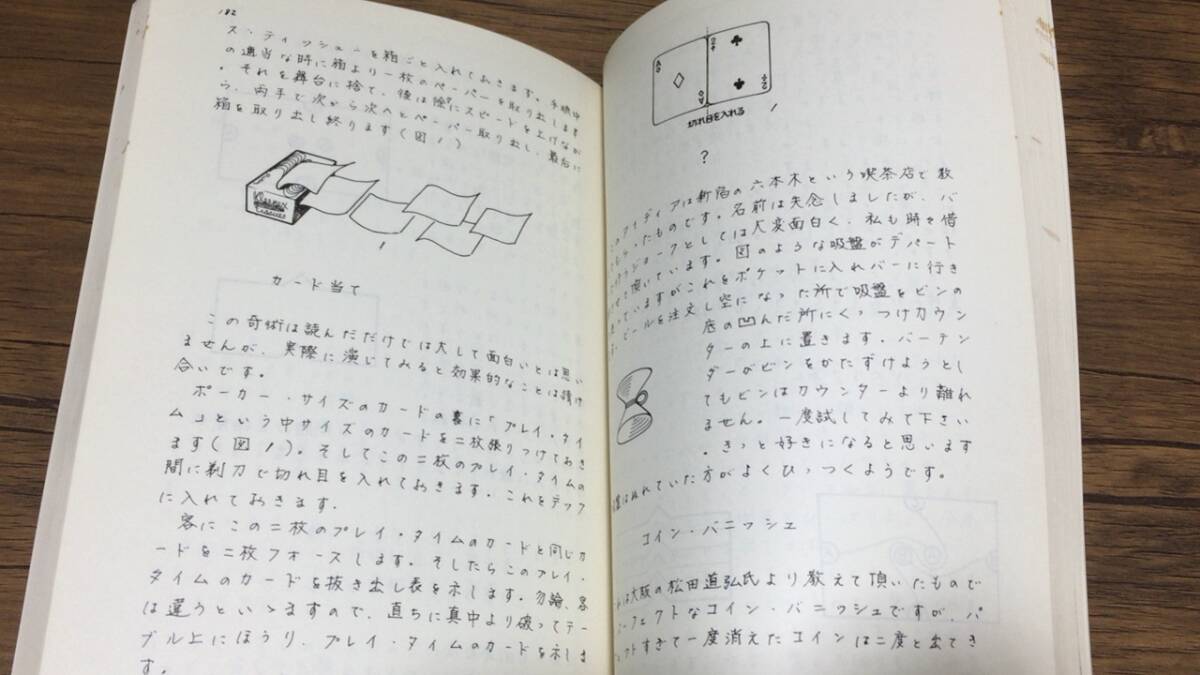 182
ス・ティッシュ－を箱ごと入れておきます。手順中
の適当な時に箱より一枚のペーパーを取り出します
。それを舞台に捨て、後は除々にスピードを上げなが
ら、両手で次から次へとペーパー取り出し、最后に
箱を取り出し終ります(図1)
Kleenex
1
カード当て
この奇術は読んだだけでは大して面白いとは思い
ませんが、実際に演じてみると効果的なことは請け
合いです。
ポーカー・サイズのカードの裏に「プレイ・タイ
ム」という中サイズのカードを二枚張りつけておき
ます(図1)。そしてこの二枚のプレイ・タイムの
間に剃刀で切れ目を入れておきます。これをデック
に入れておきます。
客にこの二枚のプレイ・タイムのカードと同じカ
ードを二枚フォースします。そしたらこのプレイ・
タイムのカードを抜き出し表を示します。勿論、客
は違うといゝますので、直ちに真中より破ってテー
ブル上にほうり、プレイ・タイムのカードを示しま
す。
A
A
2
2
切れ目を入れる
1
?
このアイディアは新宿の六本木という喫茶店で教
ったものです。名前は失念しましたが、バ
ジョークとしては大変面白く、私も時々借
せて頂いています。図のような吸盤がデパート
っていますがこれをポケットに入れバーに行き
す。ビールを注文し空になった所で吸盤をビンの
底の凹んだ所にくっつけカウン
ターの上に置きます。バーテン
ダーがビンをかたずけようとし
てもビンはカウンターより離れ
ません。一度試してみて下さい
。きっと好きになると思います
れていた方がよくひっつくようです。
コイン・バニッシュ
は大阪の松田道弘氏より教えて頂いたもので
ーフェクトなコイン・バニッシュですが、パ
クトすぎて一度消えたコインは二度と出てき